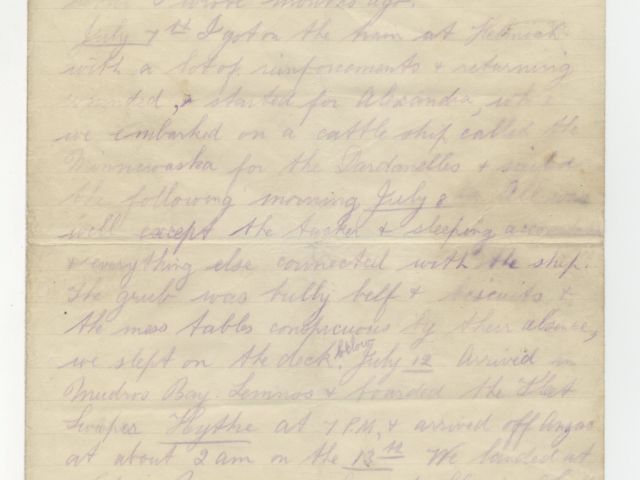 I wrote months ago.
July 7th I got on the train at
with a lot of reinforcements & returning
wounded, & started for Alexandra,
we embarked on a cattle ship called the
Minnewaska for the Dardanelles & sailed
the following morning July 8 All was
well except the tucker & sleeping
& everything else connected with the ship.
The grub was bully beef & biscuits &
the mess tables conspicuous by their absence,
we slept on the deck. July 12 Arrived in
Mudros Bay. Lemnos & boarded the
Sweeper Hythe at 7 P.M, & arrived off Anzac
at about 2 am on the 13th We landed at